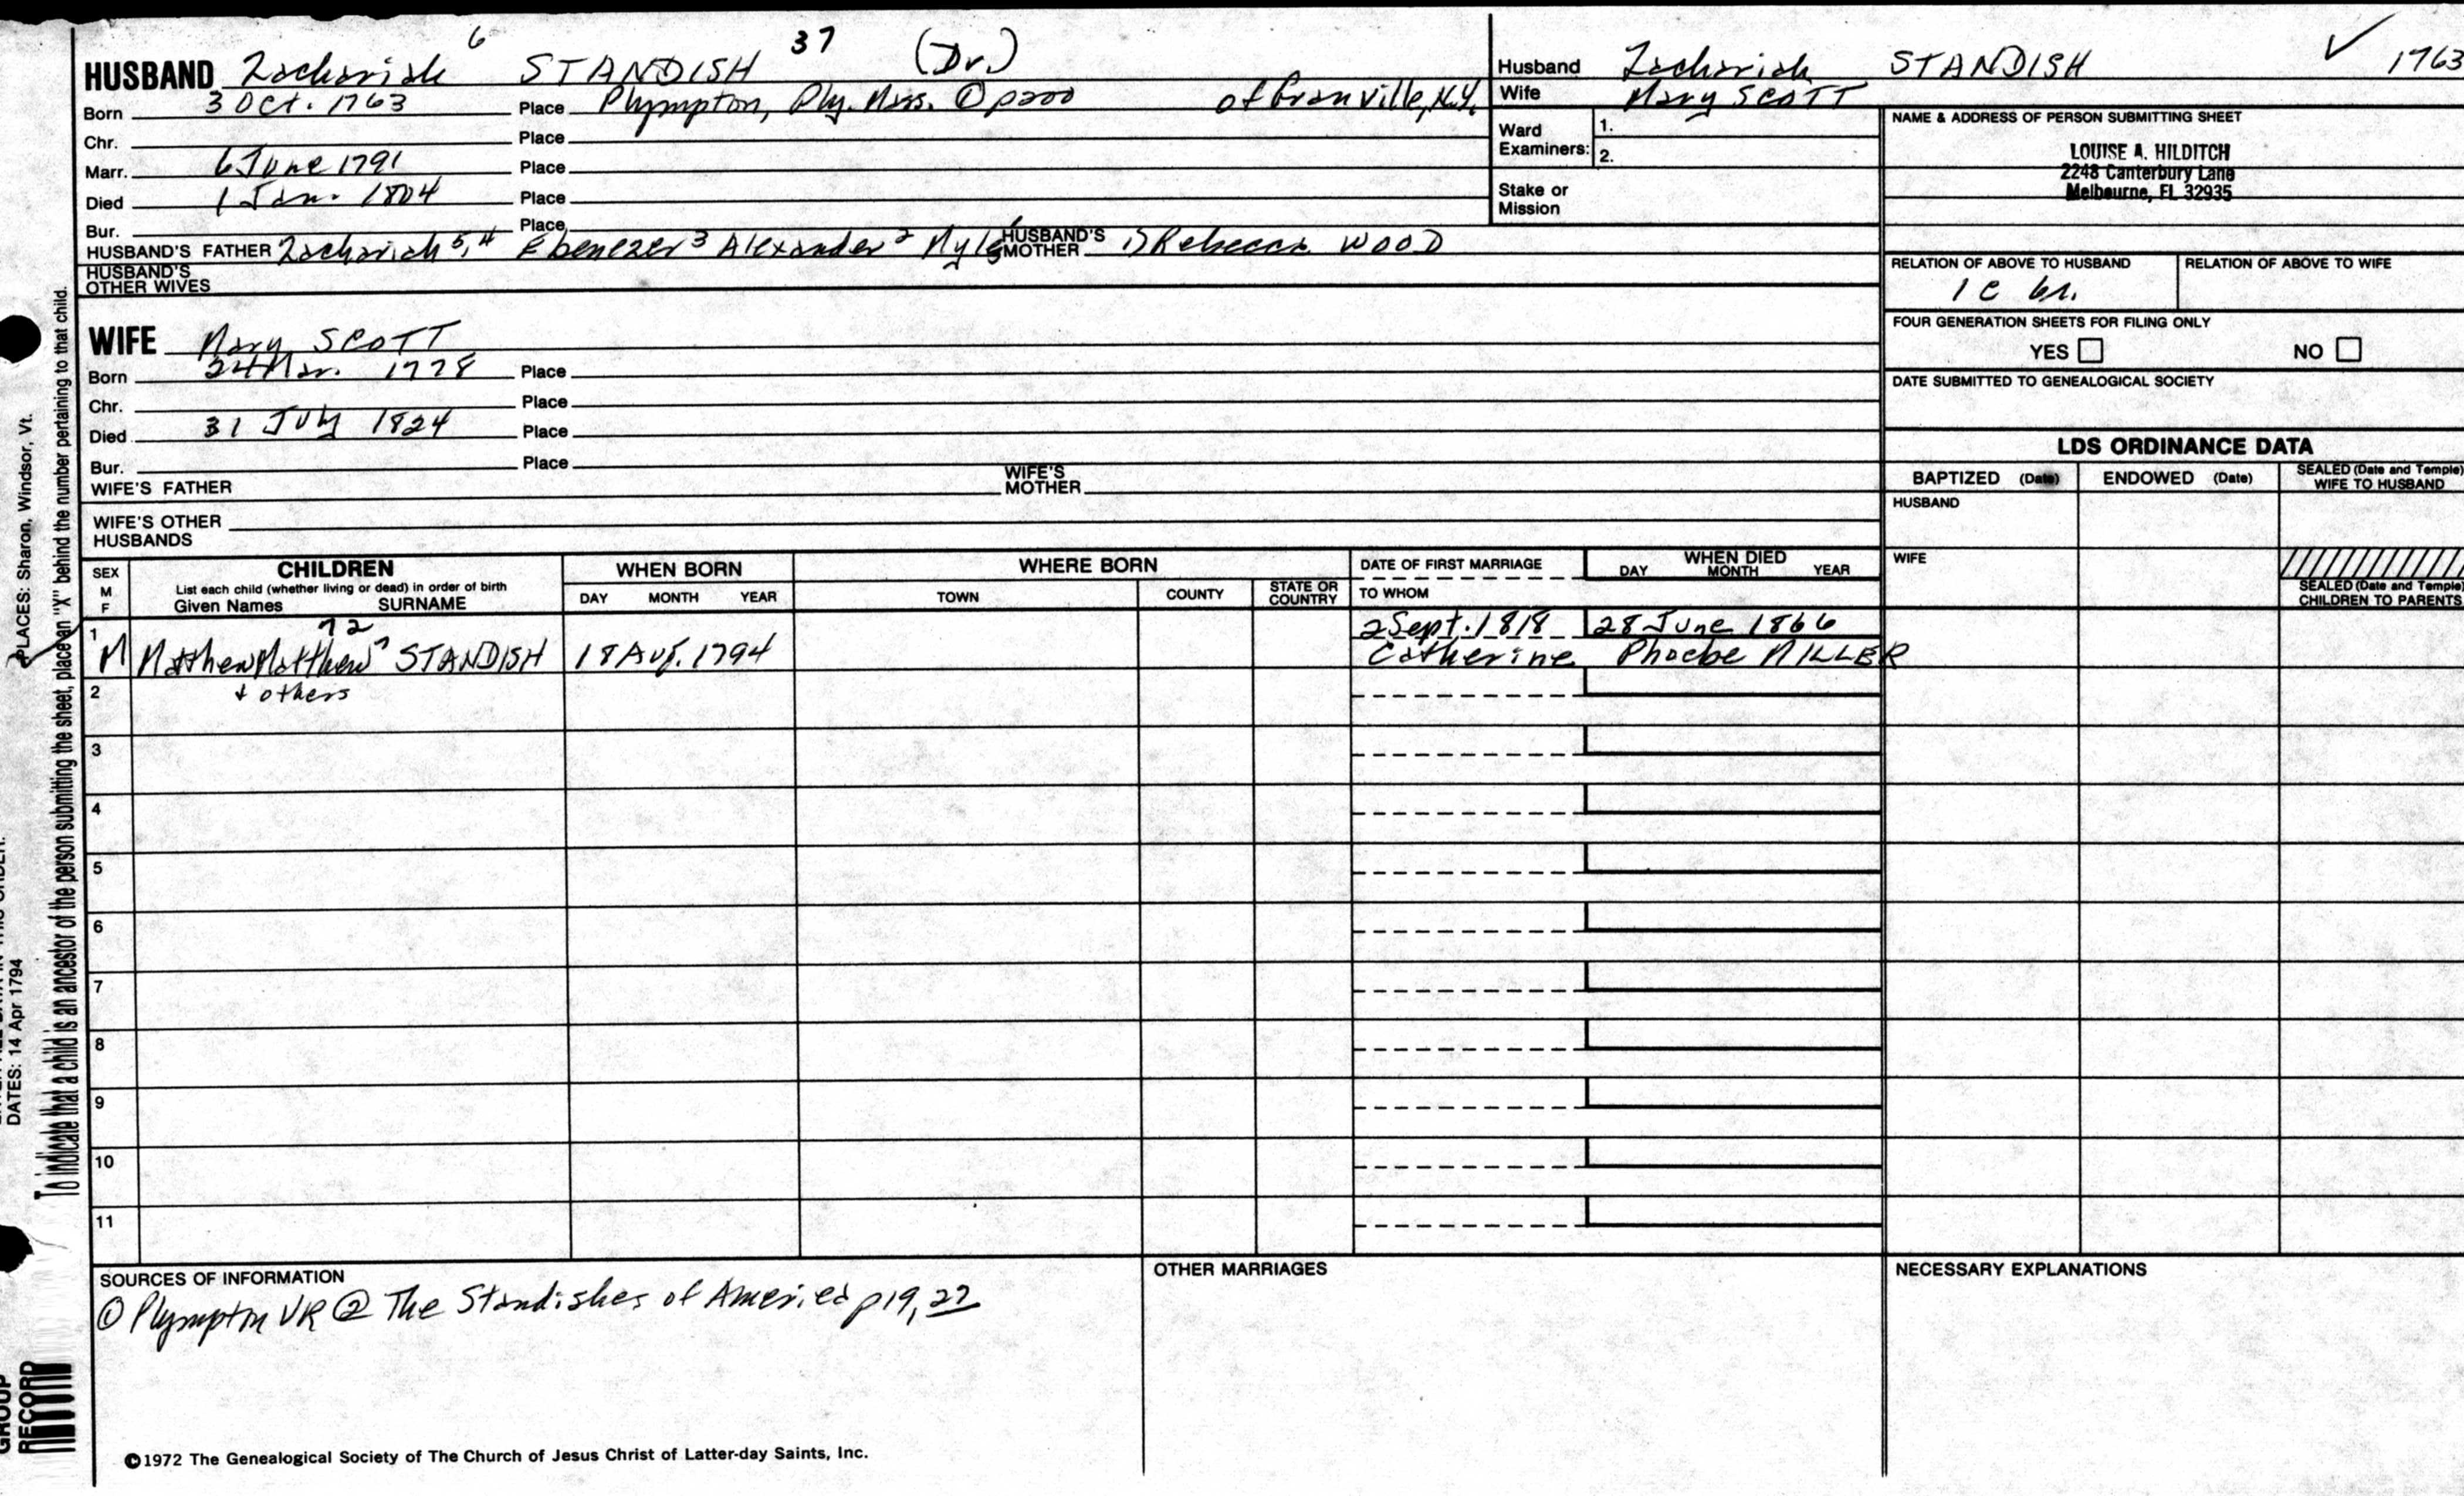 HUSBAND Zachariah 6 STANDISH 37 (Dr.)
Born 3 Oct. 1763 Place Plympton, Ply. Mass. ① p200 of Granville, N.Y.
Chr. Place
Marr. 6 June 1791 Place
Died 1 Jan. 1804 Place
Bur. Place
HUSBAND'S FATHER Zachariah 5,4 Ebenezer 3 Alexander 2 Myles HUSBAND'S MOTHER 1) Rebecca WOOD
HUSBAND'S OTHER WIVES
Husband Zachariah STANDISH ✓ 1763
Wife Mary SCOTT
Ward Examiners: 1.
2.
Stake or Mission
NAME & ADDRESS OF PERSON SUBMITTING SHEET
LOUISE A. HILDITCH
2248 Canterbury Lane
Melbourne, FL 32935
RELATION OF ABOVE TO HUSBAND RELATION OF ABOVE TO WIFE
1 c 6r.
FOUR GENERATION SHEETS FOR FILING ONLY
YES NO
DATE SUBMITTED TO GENEALOGICAL SOCIETY
WIFE Mary SCOTT
Born 24 Mar. 1778 Place
Chr. Place
Died 31 July 1824 Place
Bur. Place
WIFE'S FATHER WIFE'S MOTHER
WIFE'S OTHER HUSBANDS
LDS ORDINANCE DATA
BAPTIZED (Date) ENDOWED (Date) SEALED (Date and Temple) WIFE TO HUSBAND
HUSBAND
WIFE
SEALED (Date and Temple) CHILDREN TO PARENTS
SEX M F CHILDREN
List each child (whether living or dead) in order of birth
Given Names SURNAME
WHEN BORN
DAY MONTH YEAR
WHERE BORN
TOWN COUNTY STATE OR COUNTRY
DATE OF FIRST MARRIAGE
TO WHOM
WHEN DIED
DAY MONTH YEAR
1 72 2 Sept. 1818 28 June 1866
M Matthew Matthew 7 STANDISH 18 Aug. 1794 Catherine Phoebe MILLER
2 + others
3
4
5
6
7
8
9
10
11
SOURCES OF INFORMATION
① Plympton VR ② The Standishes of America p19, 27
OTHER MARRIAGES
NECESSARY EXPLANATIONS
©1972 The Genealogical Society of The Church of Jesus Christ of Latter-day Saints, Inc.
To indicate that a child is an ancestor of the person submitting the sheet, place an "X" behind the number pertaining to that child.
PLACES: Sharon, Windsor, Vt.
DATES: 14 Apr 1794
GROUP
RECORD